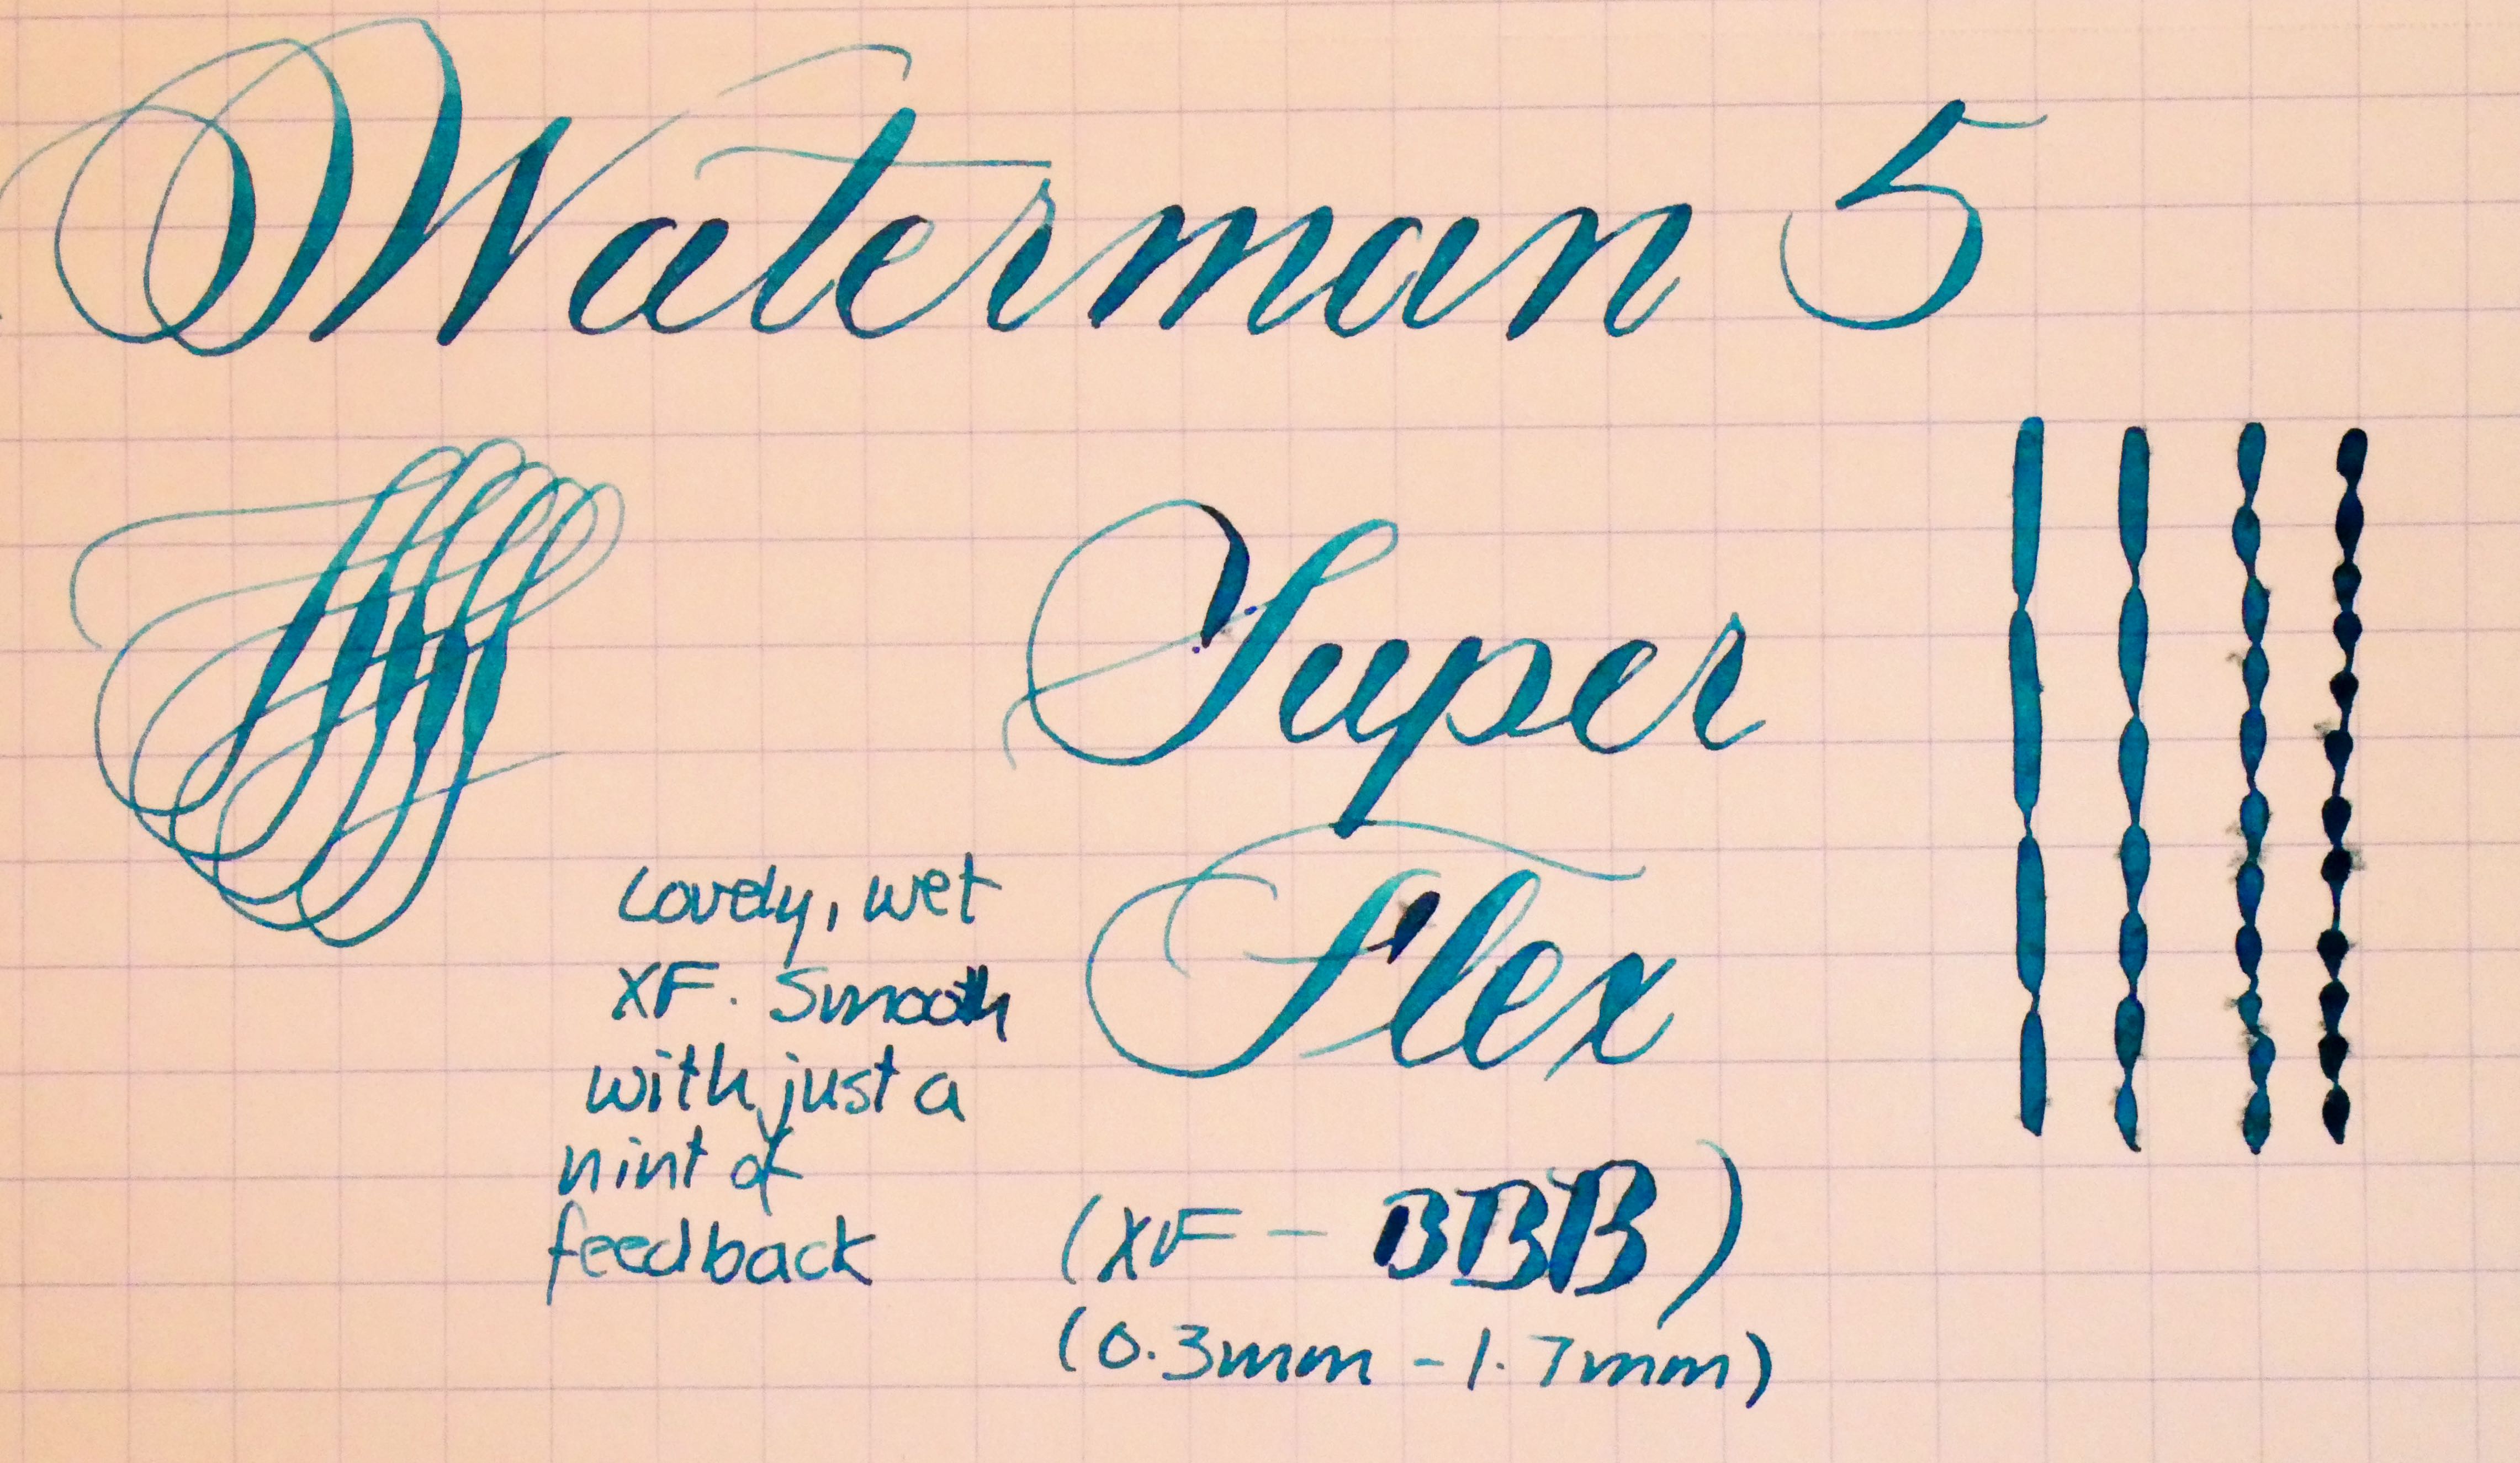 Waterman 5
Super
Flex
Lovely, wet
XF. Smooth
with just a
hint of
feedback
(XF - BBB)
(0.3mm - 1.7mm)